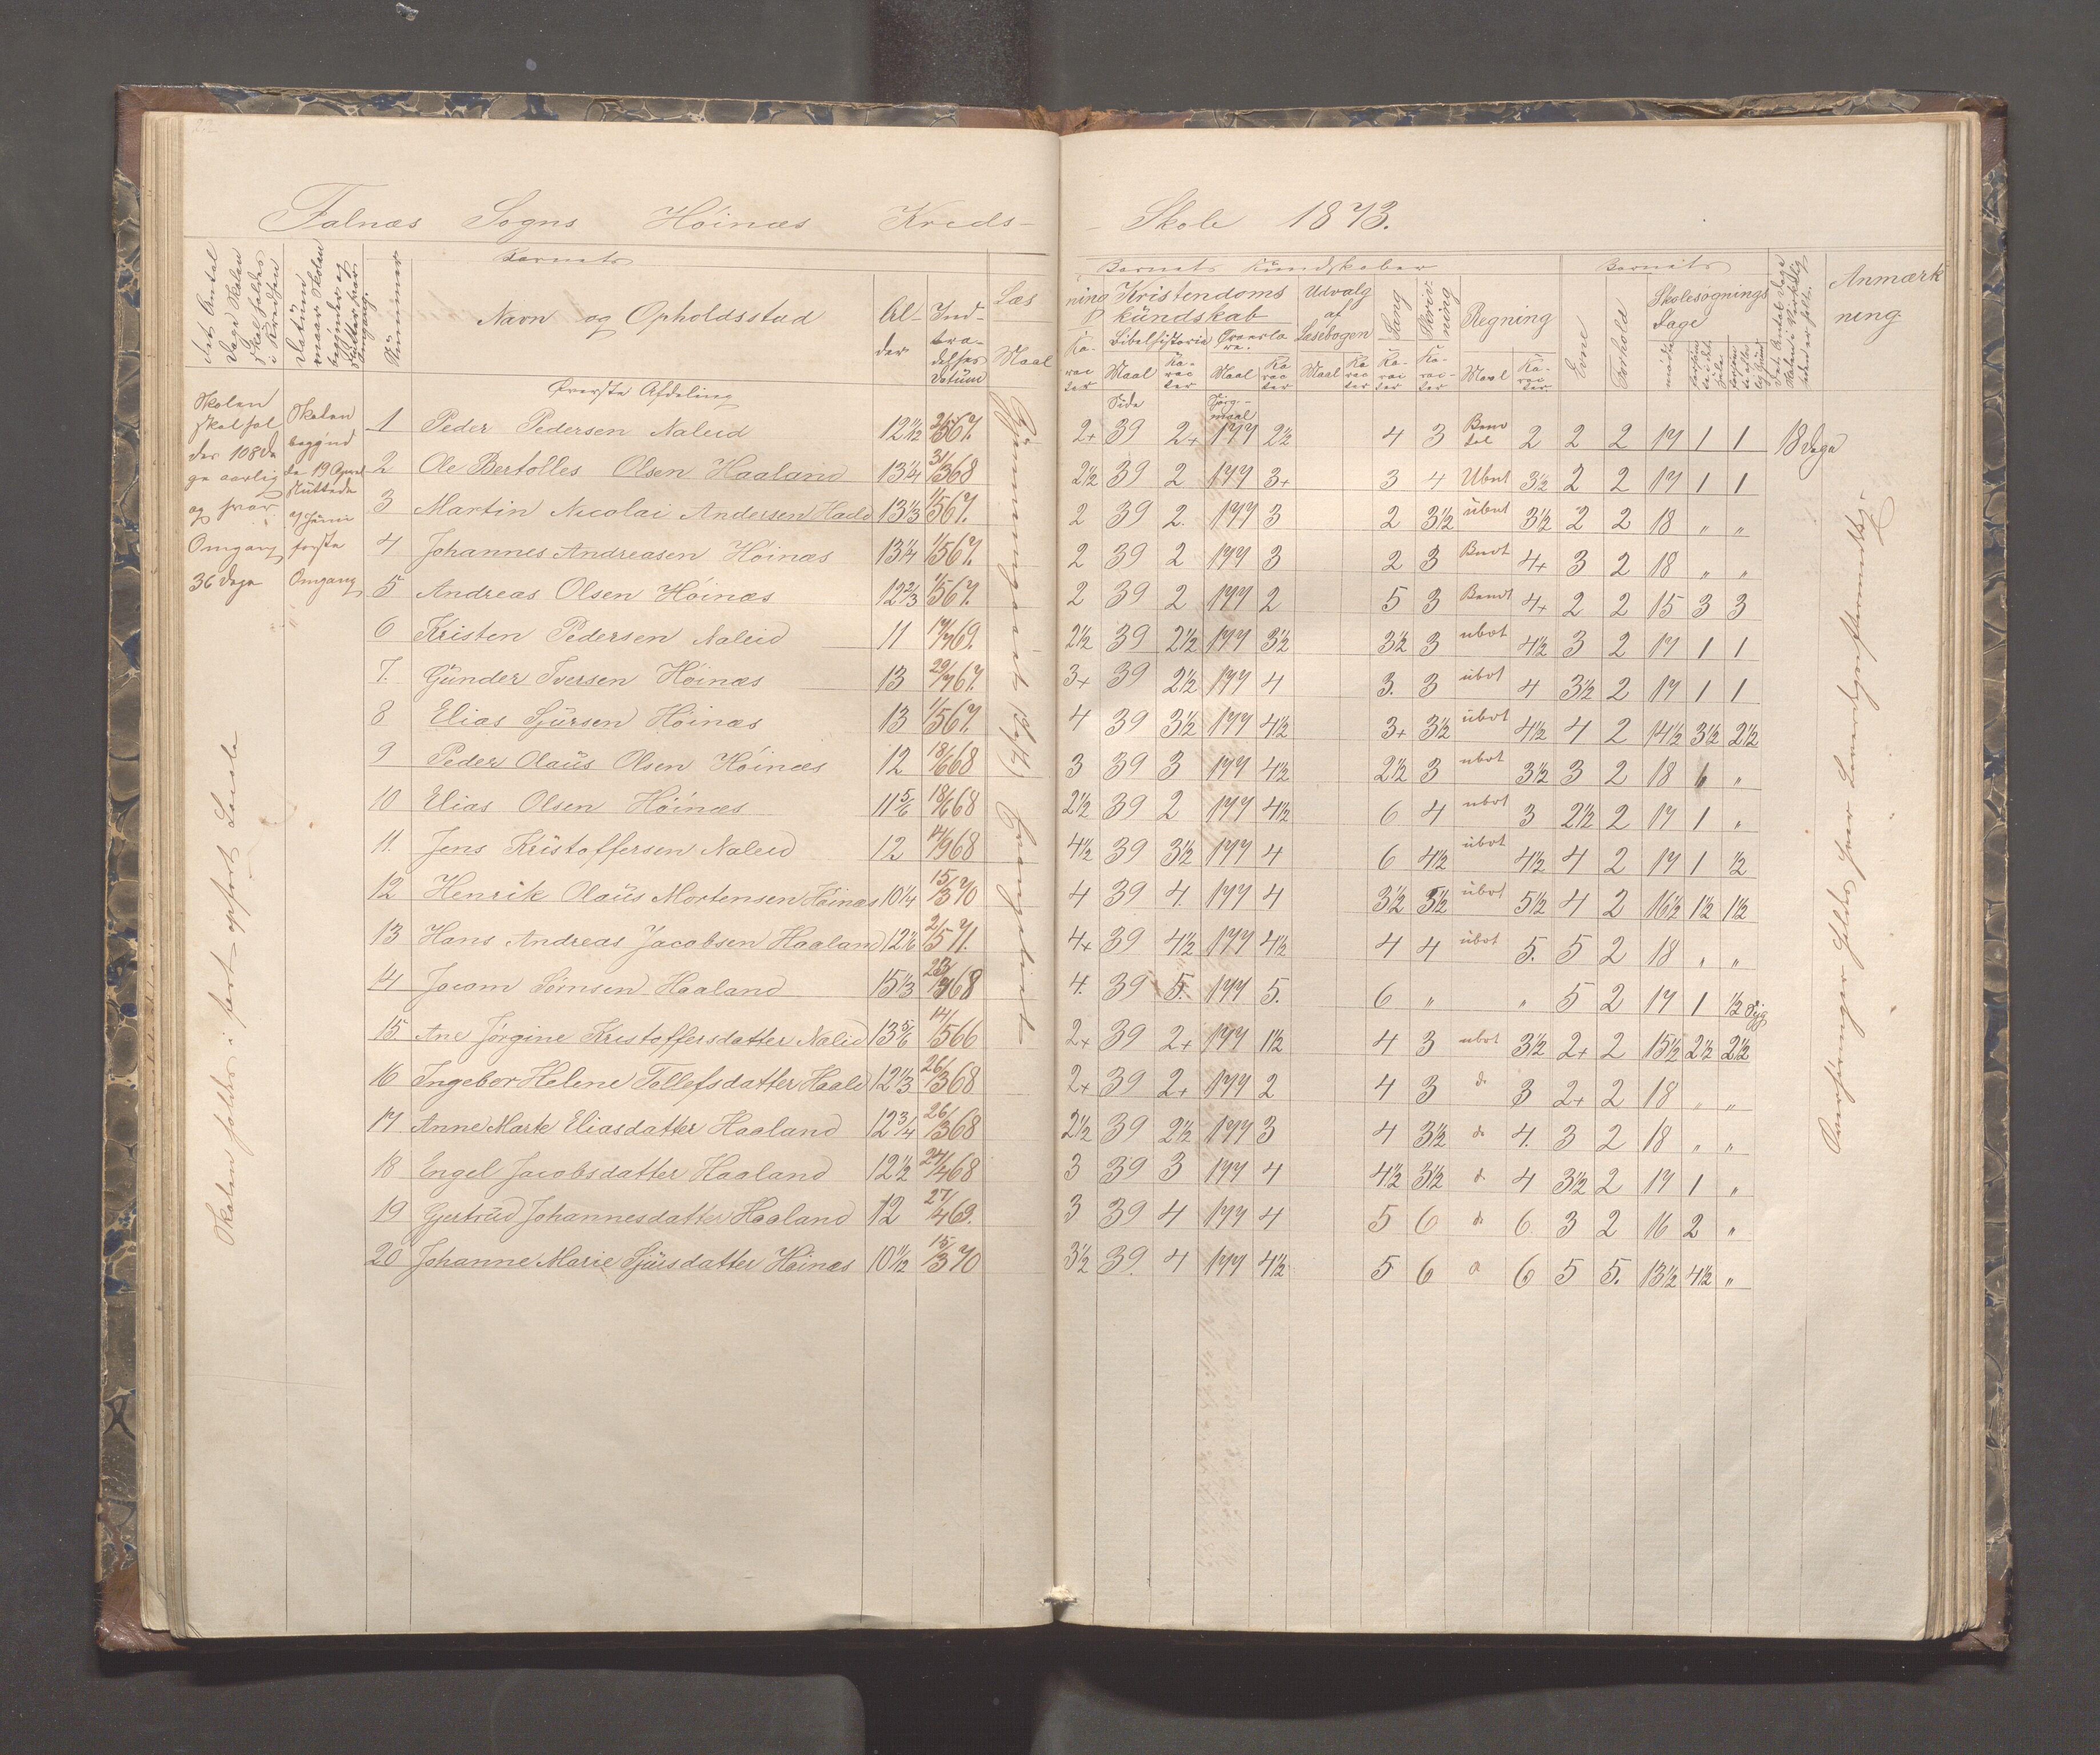 Falnæs Sogns Höinæs Kreds-
- Skole 1873.
Det Antal Dage Skolen skal holdes i Kredsen
Datum naar Skolen begynder og slutter hver Omgang.
Nummer
Barnets
Navn og Opholdsstad
Al-der
Ind-træ-delses Datum
Læs
Maal
ning
Ka-rac ter
Barnets Kundskaber
Kristendoms kundskab
Bibelhistorie
Maal
Ka-rac ter
Maal
Ka rac ter
Udvalg af Læsebogen
Maal
Ka rac ter
Sang
Ka-rac ter
Skriv ning
Ka-rac-ter
Regning
Maal
Ka-rac ter
Barnets
Evne
Forhold
Skolesøgnings Dage
mødt
Anmærk ning
Øverste Afdeling
Side
Spørg-maal
Skolen skal hol des 108 Da ge aarlig og hver Omgang 36 Dage
Skolen begynd de 19 April Sluttede Juni første Omgang
1 Peder Pedersen Naleid 12 1/12 2/5 67. 2+ 39 2+ 177 2½ 4 3 2 2 2 17 1 1 18 Dage
2 Ole Bertolles Olsen Haaland 13¼ 31/3 68 2½ 39 2 177 3+ 3 4 Ubnt 3½ 2 2 17 1 1
3 Martin Nicolai Andersen Haald 13⅓ 1/5 67. 2 39 2. 177 3 2 3½ ubnt 3½ 2 2 18 " "
4 Johannes Andreasen Höinæs 13¼ 1/5 67. 2 39 2 177 3 2 3 4+ 3 2 18 " "
5 Andreas Olsen Höinæs 12⅔ 1/5 67. 2 39 2 177 2 5 3 4+ 2 2 15 3 3
6 Kristen Pedersen Naleid 11 69. 2½ 39 2½ 177 3½ 3½ 3 ubnt 4½ 3 2 17 1 1
7. Gunder Iversen Höinæs 13 67. 3+ 39 2½ 177 4 3. 3 ubnt 4 3½ 2 17 1 1
8 Elias Sjursen Höinæs 13 1/5 67. 4 39 3½ 177 4½ 3+ 3½ ubnt 4½ 4 2 14½ 3½ 2½
9 Peder Olaus Olsen Höinæs 12 18/6 68 3 39 3 177 4½ 2½ 3 ubnt 3½ 3 2 18 "
10 Elias Olsen Höinæs 11 5/6 18/6 68 2½ 39 2 177 4½ 6 4 ubnt 3 2½ 2 17 1 "
11. Jens Kristoffersen Naleid 12 68 4½ 39 3½ 177 4 6 4½ ubnt 4½ 4 2 17 1 ½
12 Henrik Olaus Mortensen Höinæs 10¼ 15/3 70 4 39 4. 177 4 3½ 3½ ubnt 5½ 4 2 16½ 1½ 1½
13 Hans Andreas Jacobsen Haaland 12⅙ 2/5 71. 4+ 39 4½ 177 4½ 4 4 ubnt 5. 5 2 18 " "
14 Jocom Sömsen Haaland 15⅓ 68 4. 39 5. 177 5. 6 " " 5 2 17 1 ½ Syg
15. Ane Jörgine Kristoffersdatter Naleid 13 5/6 14/5 66 2+ 39 2+ 177 1½ 4 3 ubnt 3½ 2+ 2 15½ 2½ 2½
16 Ingebor Helene Tollefsdatter Haald 12⅓ 26/3 68 2+ 39 2+ 177 2 4 3 do 3 2+ 2 18 " "
17 Anne Marte Eliasdatter Haaland 12¾ 26/3 68 2½ 39 2½ 177 3 4 3½ do 4. 3 2 18 " "
18 Engel Jacobsdatter Haaland 12½ 27/4 68 3 39 3 177 4 4½ 3½ do 4 3½ 2 17 1 "
19 Gjertrud Johannesdatter Haaland 12 27/4 69. 3 39 4 177 4 5 6 do 6. 3 2 16 2 "
20 Johanne Marie Sjursdatter Höinæs 10 1/12 15/3 70 3½ 39. 4 177 4½ 5 6 6 5 5. 13½ 4½ "
Skolen holdes i fert opført Locale